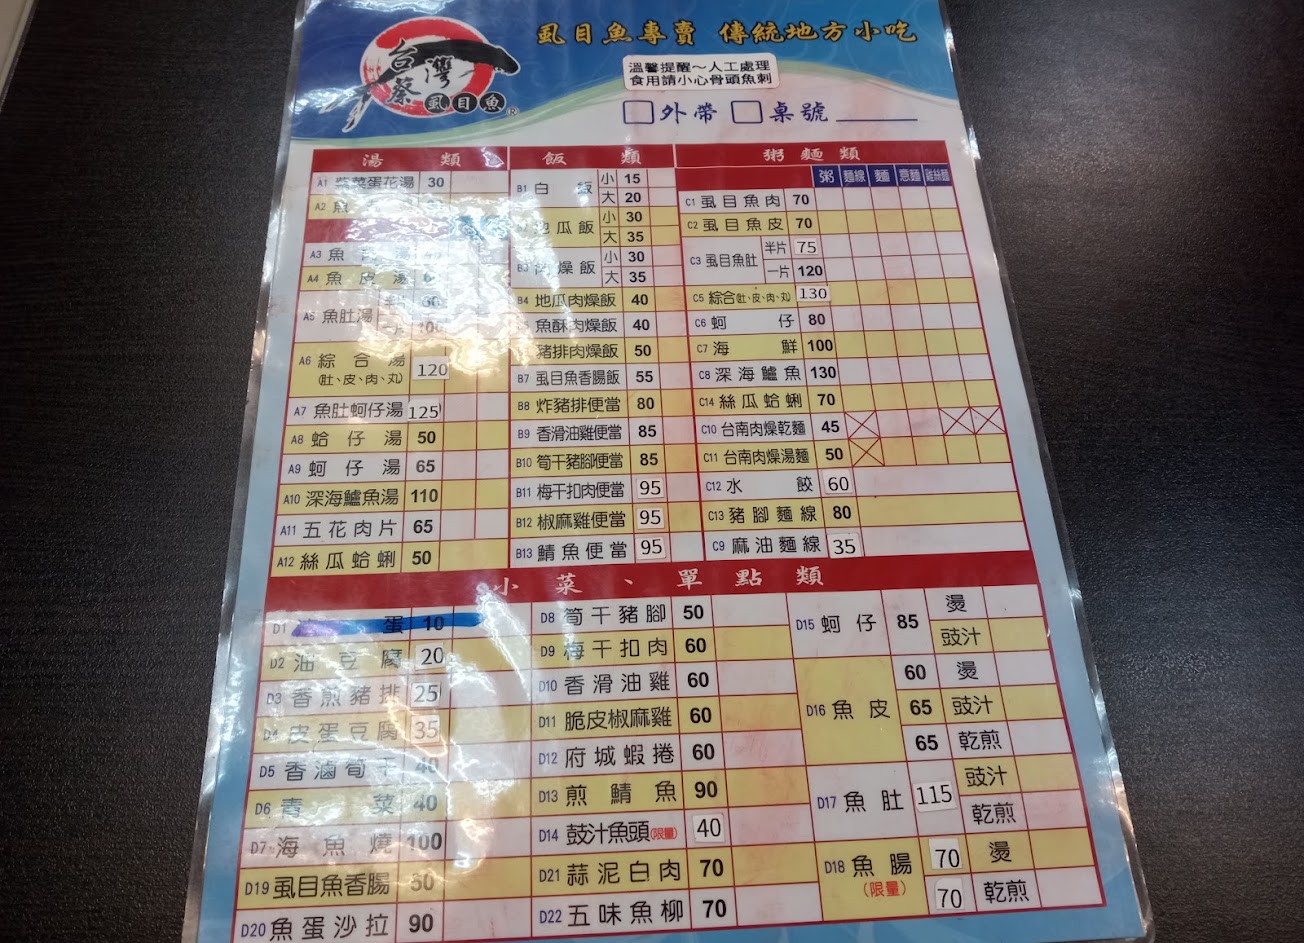 虱目魚專賣 傳統地方小吃
台灣
蔡
虱目魚®
溫馨提醒～人工處理
食用請小心骨頭魚刺
□外帶 □桌號
湯類
A1 紫菜蛋花湯 30
A2 魚
A3 魚
A4 魚皮湯
A5 魚肚湯
一片 100
A6 綜合湯 120
(肚、皮、肉、丸)
A7 魚肚蚵仔湯 125
A8 蛤仔湯 50
A9 蚵仔湯 65
A10 深海鱸魚湯 110
A11 五花肉片 65
A12 絲瓜蛤蜊 50
飯類
B1 白飯 小 15
大 20
地瓜飯 小 30
大 35
B3 肉燥飯 小 30
大 35
B4 地瓜肉燥飯 40
魚酥肉燥飯 40
豬排肉燥飯 50
B7 虱目魚香腸飯 55
B8 炸豬排便當 80
B9 香滑油雞便當 85
B10 筍干豬腳便當 85
B11 梅干扣肉便當 95
B12 椒麻雞便當 95
B13 鯖魚便當 95
粥麵類
粥 麵線 麵 意麵 雞絲麵
C1 虱目魚肉 70
C2 虱目魚皮 70
C3 虱目魚肚 半片 75
一片 120
C5 綜合(肚、皮、肉、丸) 130
C6 蚵仔 80
C7 海鮮 100
C8 深海鱸魚 130
C14 絲瓜蛤蜊 70
C10 台南肉燥乾麵 45
C11 台南肉燥湯麵 50
C12 水餃 60
C13 豬腳麵線 80
C9 麻油麵線 35
小菜、單點類
D1 蛋 10
D2 油豆腐 20
D3 香煎豬排 25
D4 皮蛋豆腐 35
D5 香滷筍干 40
D6 青菜 40
D7 海魚燒 100
D19 虱目魚香腸 50
D20 魚蛋沙拉 90
D8 筍干豬腳 50
D9 梅干扣肉 60
D10 香滑油雞 60
D11 脆皮椒麻雞 60
D12 府城蝦捲 60
D13 煎鯖魚 90
D14 鼓汁魚頭(限量) 40
D21 蒜泥白肉 70
D22 五味魚柳 70
D15 蚵仔 85 燙
豉汁
D16 魚皮 60 燙
65 豉汁
65 乾煎
D17 魚肚 115 豉汁
乾煎
D18 魚腸 70 燙
(限量) 70 乾煎